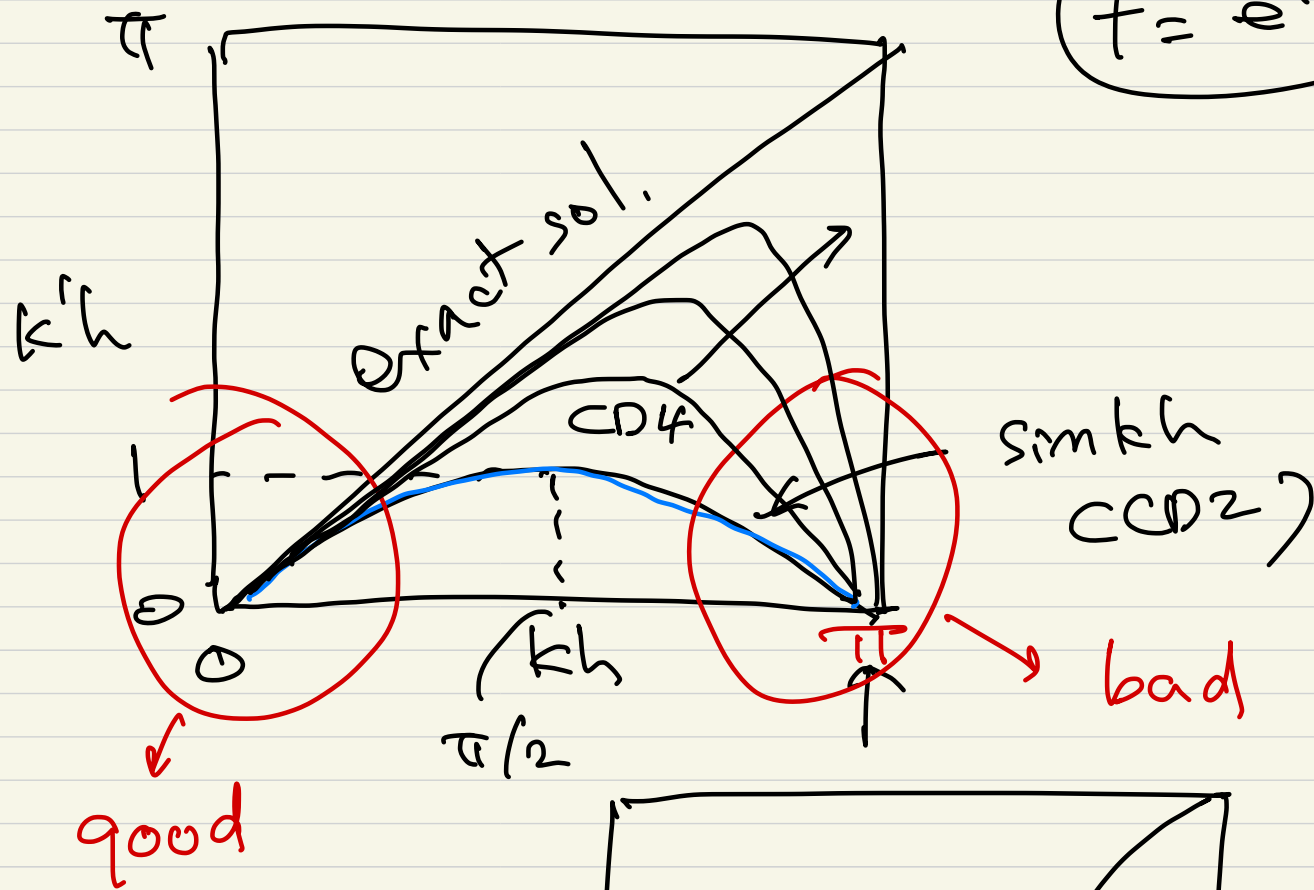 π
f = e
exact sol.
k'h
CD4
sinkh
(CD2)
1
0
0
kh
π
π/2
bad
good